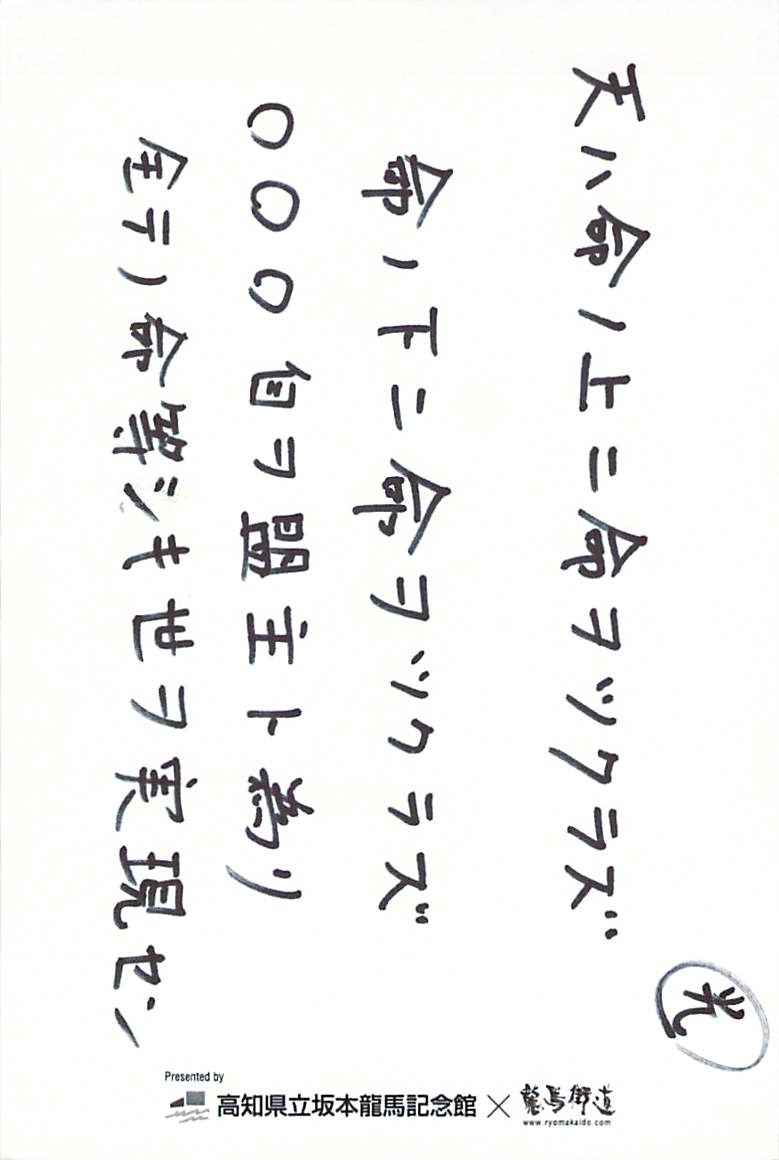 天ハ命ノ上ニ命ヲツクラズ
命ノ下ニ命ヲツクラズ
〇〇〇自ヲ盟主ト為リ
全テノ命等シキ世ヲ実現セン
光
Presented by
高知県立坂本龍馬記念館×龍馬街道
www.ryomakaido.com